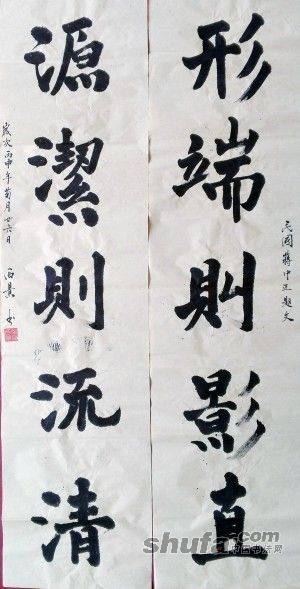 形端則影直
民國蔣中正題文
源潔則流清
歲次丙申年菊月廿六日
shufa.com
中国书法网